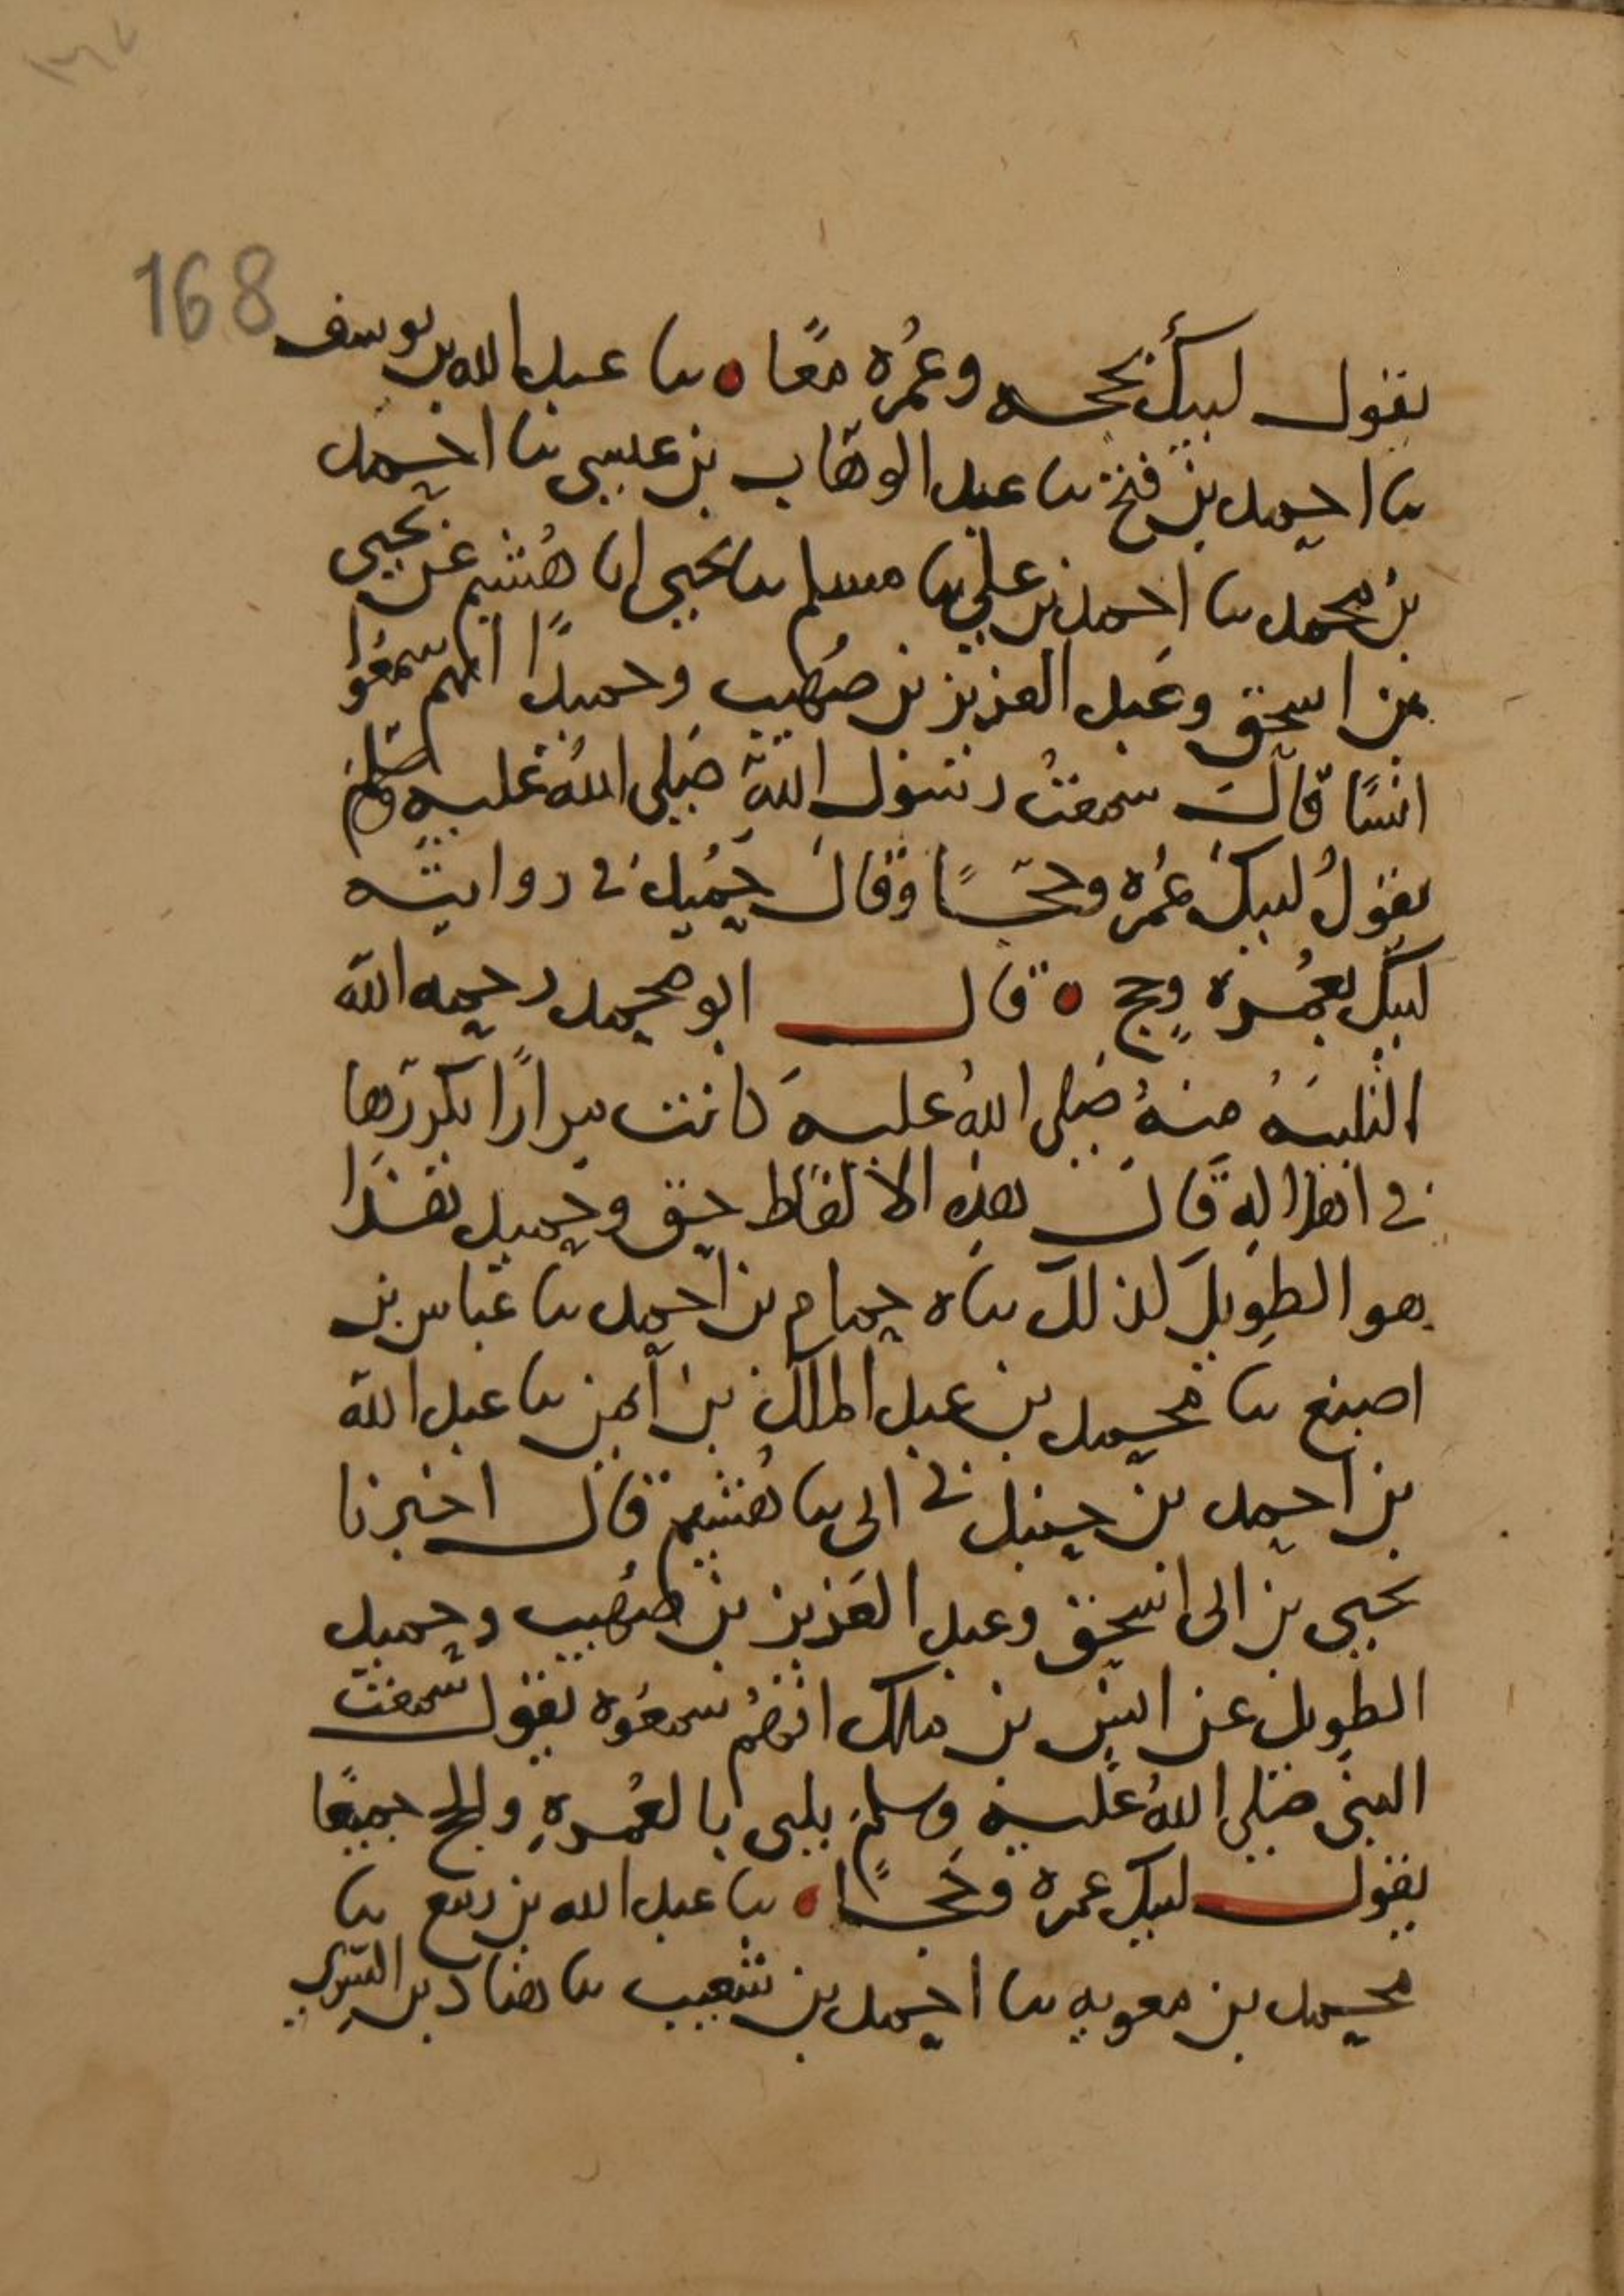 168
يقول لبيك بحجه وعمره معا ه ثنا عبد الله بن يوسف
ثنا احمد بن فتح ثنا عبد الوهاب بن عيسى ثنا احمد
بن محمد ثنا احمد بن علي ثنا مسلم ثنا يحيى انا هُشيم عن يحيى
بن اسحق وعبد العزيز بن صُهيب وحميدًا انهم سمعُوا
انسًا قال سمعتُ رسول الله صلى اللهُ عليه وسلم
يقولُ لبيك عُمره وحجًا وقال حميد في روايته
لبيك بعُمره وحج ه قال ابو محمد رحمه الله
التلبيه منهُ صلى اللهُ عليه كانت مرارًا يكررها
في اهلاله قال هذه الالفاظ حق وحميد هذا
هو الطويل لذلك ثناه حمام بن احمد ثنا عباس بن
اصبغ ثنا محمد بن عبد الملك بن ايمن ثنا عبد الله
بن احمد بن حنبل ني ابي ثنا هُشيم قال اخبرنا
يحيى بن ابي اسحق وعبد العزيز بن صُهيب وحميد
الطويل عن انس بن ملك انهُم سمعُوه يقول سمعت
النبي صلى اللهُ عليه وسلم يلبي بالعُمرهِ والحج جميعًا
يقول لبيك عمره وحجًا ه ثنا عبد الله بن ربيع ثنا
محمد بن معويه ثنا احمد بن شعيب ثنا هناد بن السري